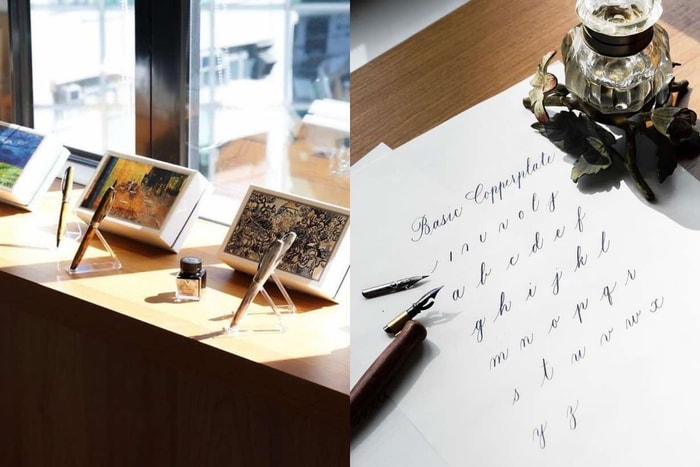 Basic Copperplate
ı n u v o l y
a b c d e f
g h i j k l
m n o p q r
s t u v w x
y z